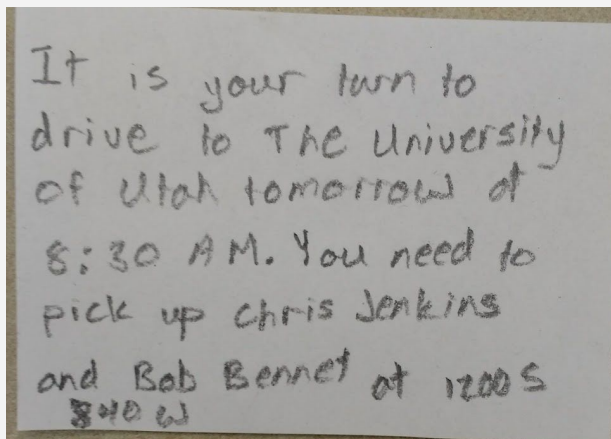 It is your turn to
drive to The University
of Utah tomorrow at
8:30 AM. You need to
pick up Chris Jenkins
and Bob Bennet at 1200 S
840 W